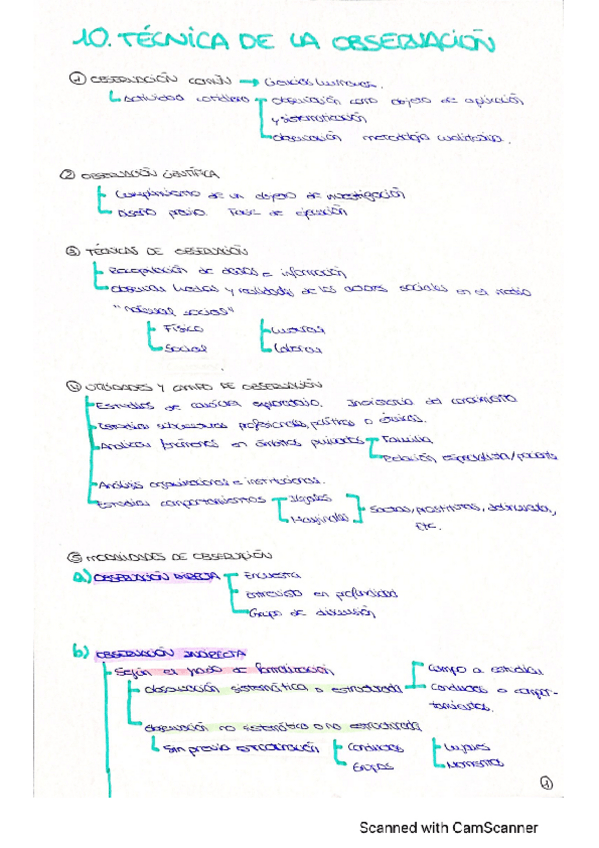 10. TÉCNICA DE LA OBSERVACIÓN
① OBSERVACIÓN COMÚN → Ciencias humanas.
Actividad cotidiana Observación como objeto de
y sistematización
Observación metodología cualitativa.
② OBSERVACIÓN CIENTÍFICA
de un objeto de investigación
Diseño previo. Fase de ejecución
③ TÉCNICAS DE OBSERVACIÓN
Recopilación de datos e información
Observar hechos y realidades de los actores sociales en el medio
"natural social"
Físico
Social Laboral
④ UTILIDADES Y CAMPO DE OBSERVACIÓN
Estudios de carácter exploratorio. del conocimiento
Estudiar subculturas profesionales, políticas o étnicas.
Analizar fenómenos en ámbitos privados Familia
Relación especialista/paciente
Análisis organizaciones e instituciones.
Estudiar comportamientos Ilegales
Marginales Sectas, prostitutas, delincuentes,
Etc.
⑤ MODALIDADES DE OBSERVACIÓN
a) OBSERVACIÓN DIRECTA Encuesta
Entrevista en profundidad
Grupo de discusión
b) OBSERVACIÓN INDIRECTA
Según el grado de formalización Campo a estudiar
Observación sistemática o estructurada Conductas o compor-
tamientos.
Observación no sistemática o no estructurada
Sin previa estructuración Conductas Lugares
Grupos Momentos
①
Scanned with CamScanner